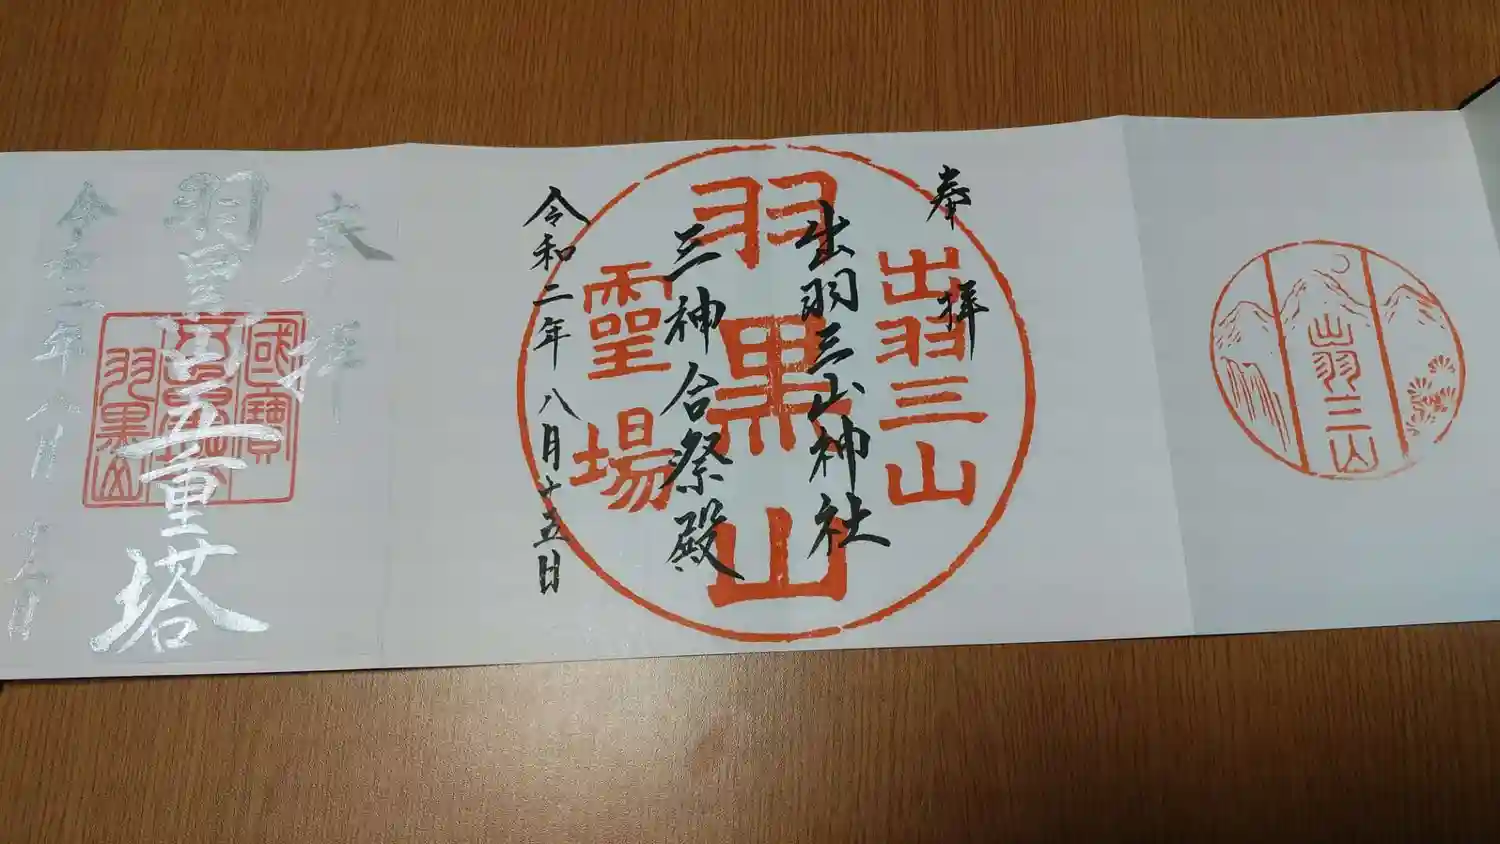 出羽三山
奉拝
出羽三山
出羽三山神社
羽黒山
三神合祭殿
靈場
令和二年八月十五日
奉拝
國寶
羽黒山五重塔
羽黒山
令和二年八月